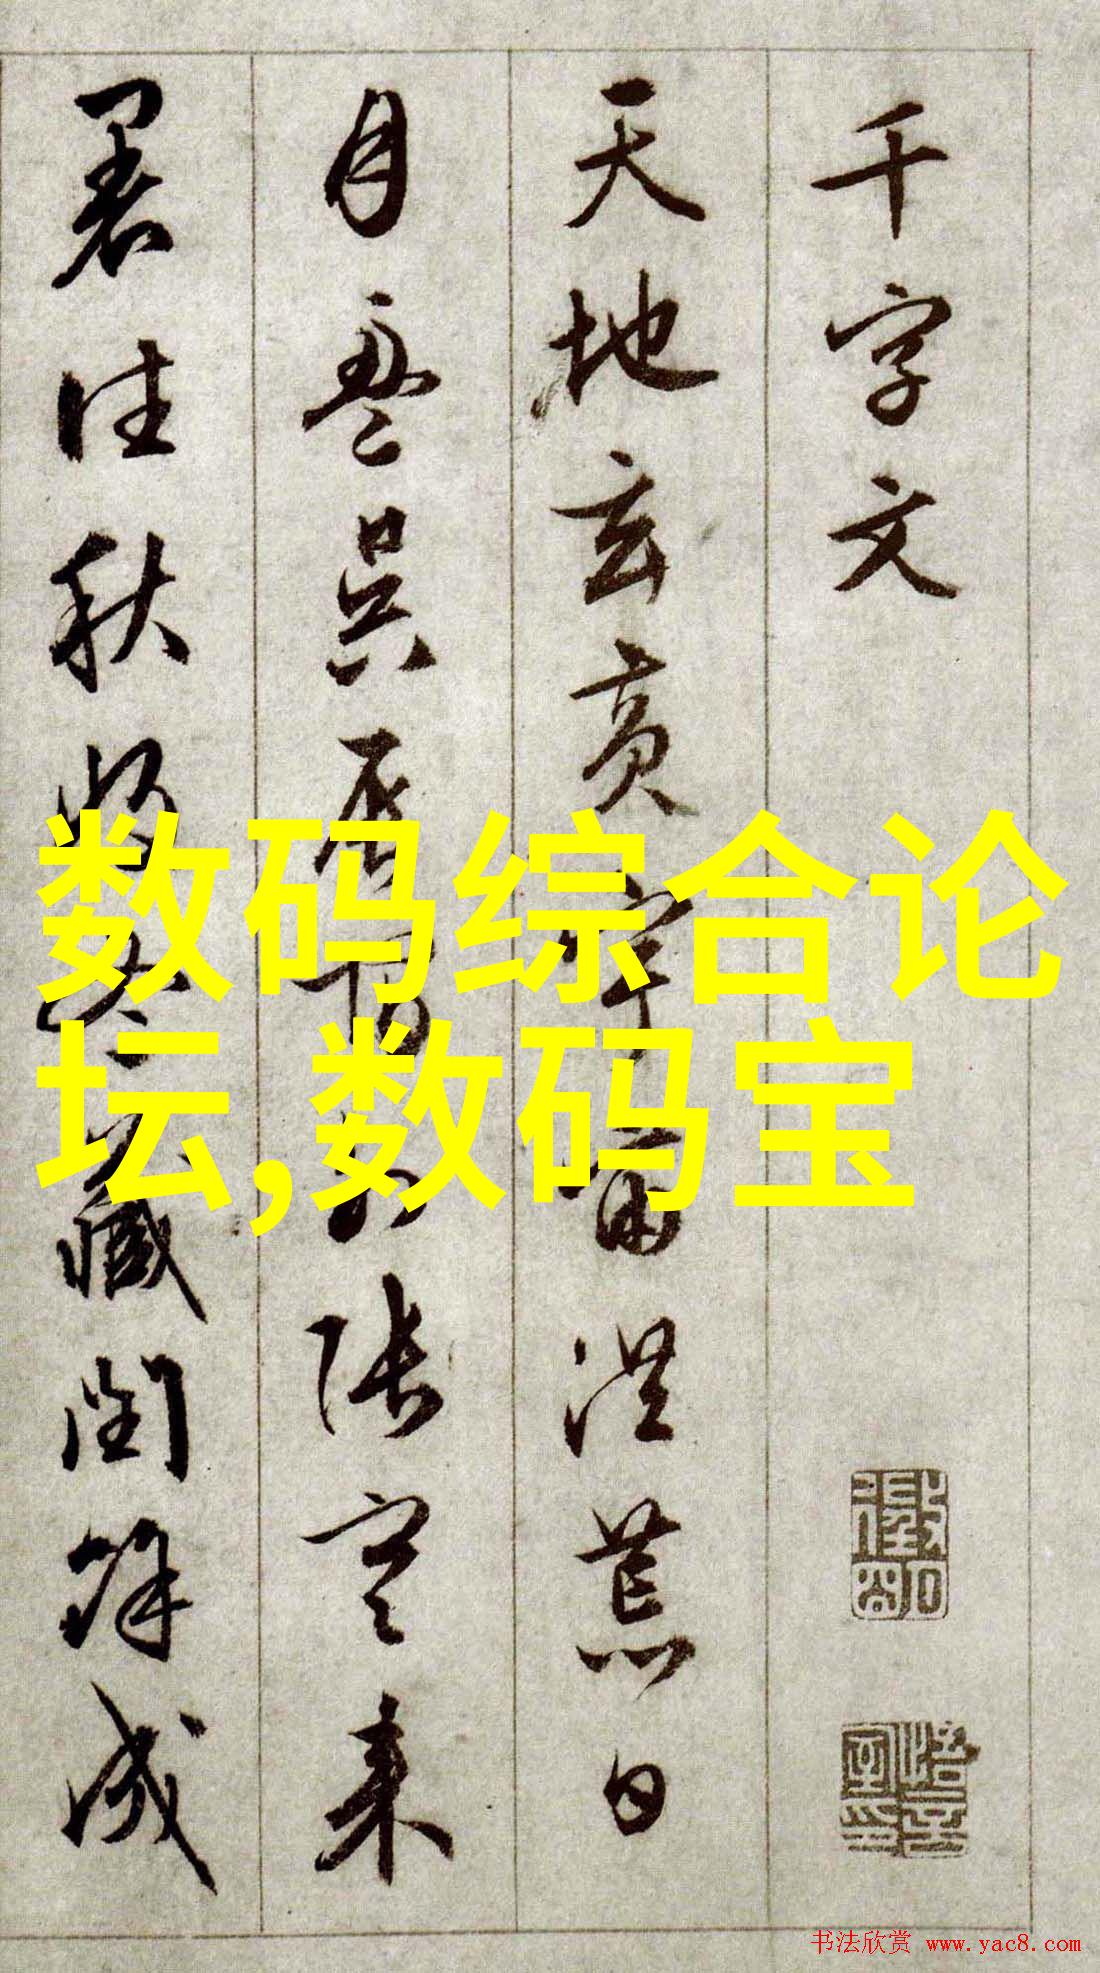 千字文
天地玄黃宇宙洪荒日
月盈昃辰宿列張寒来
暑往秋收冬藏閏餘成
数码综合论
坛,数码宝
书法欣赏 www.yac8.com